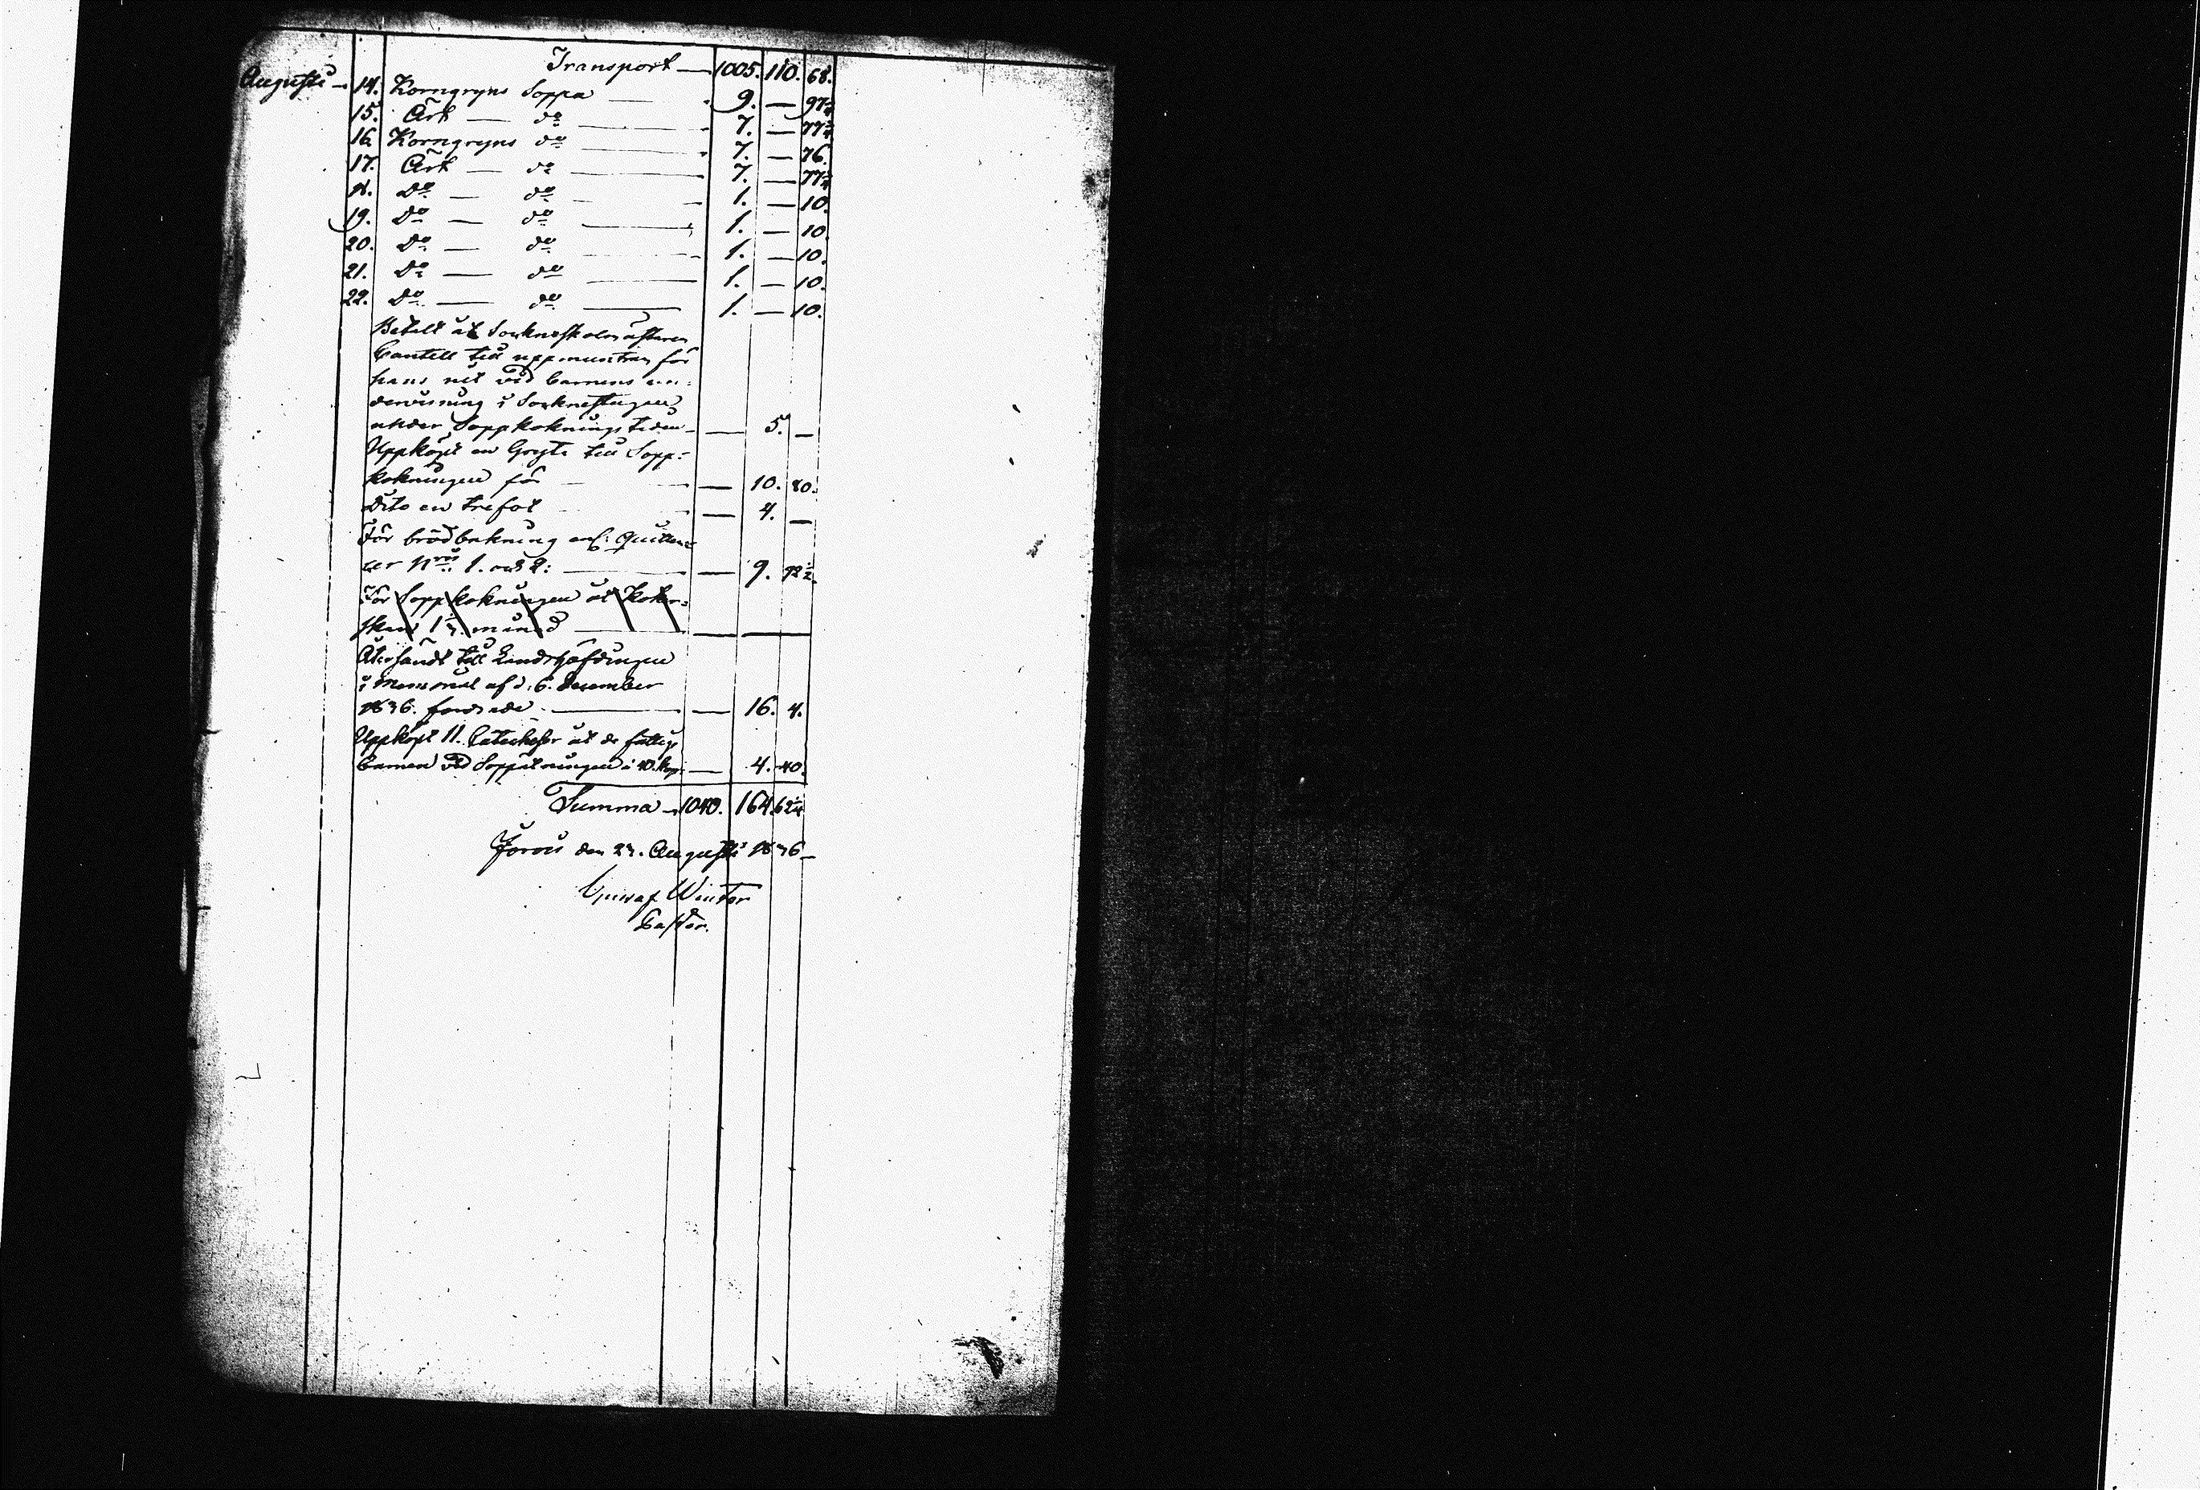 Transport — 1005. 110. 68.
Augusti — 14. Korngryns Soppa — 9. — 97 3/4
15. Ärt — do — 7. — 77 3/4
16. Korngryns do — 7. — 76.
17. Ärt — do — 7. — 77 3/4
18. Do — do — 1. — 10.
19. Do — do — 1. — 10.
20. Do — do — 1. — 10.
21. Do — do — 1. — 10.
22. Do — do — 1. — 10.
Betalt åt Socknskolmästaren
Cantell till uppmuntran för
hans nit vid barnens un-
dervisning i Socknestugan
under Soppkoknings tiden — — 5. —
Uppköpt en Gryta till Sopp-
kokningen för — — 10. 80.
Dito en trefot — 4. —
För brödbakning enl: Quitten-
cer Nris 1. och 2: — — 9. 92 1/2
För Soppkokningen åt Koker-
skan 1 1/2 månad — — —
Återsändt till Landshöfdingen
i Memorial af d. 6. December
1836. fordrade — — 16. 4.
Uppköpt 11. Catecheser åt de fattige
barnen vid Soppätningen à 40. kop: — 4. 40.
Summa — 1040. 164. 62 1/4
Jorois den 23. Augusti 1836 —
Gustaf Winter
Pastor.